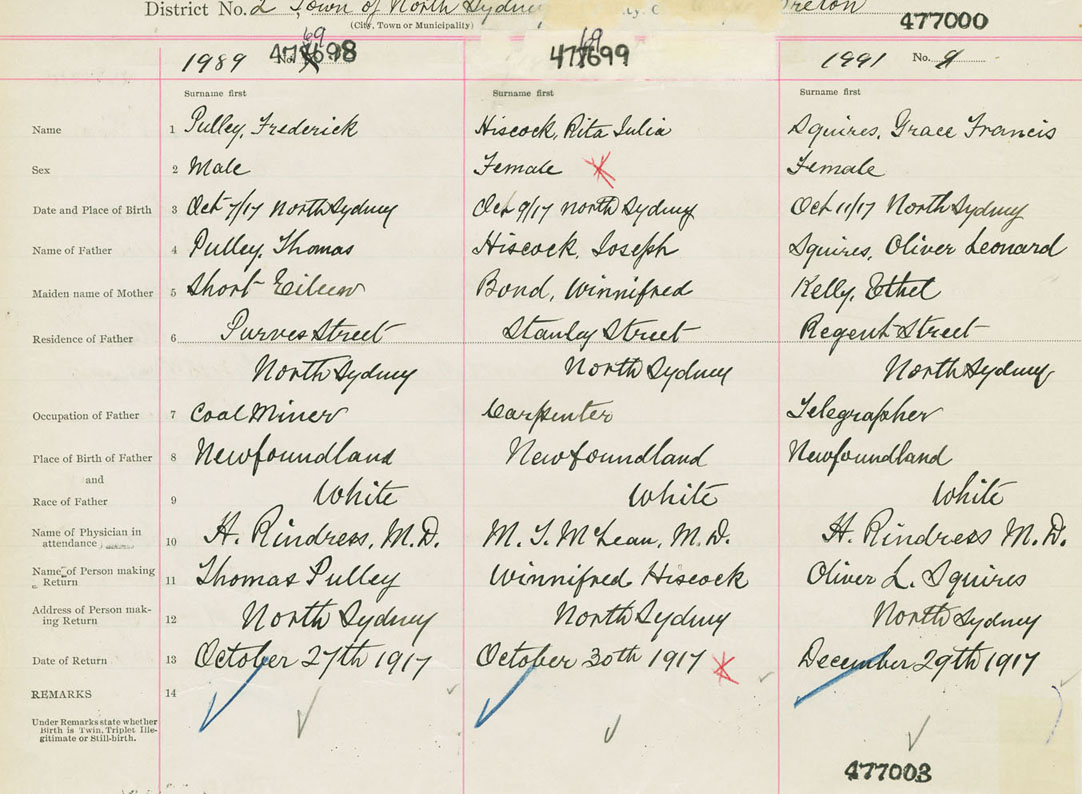 District No. 2 Town of North Sydney
(City, Town or Municipality)
477000
1989 No. 69 98
69 99
1991 No. 9
Surname first Surname first Surname first
Name 1 Pulley, Frederick Hiscock, Rita Julia Squires, Grace Francis
Sex 2 Male Female Female
Date and Place of Birth 3 Oct 7/17 North Sydney Oct 9/17 North Sydney Oct 11/17 North Sydney
Name of Father 4 Pulley, Thomas Hiscock, Joseph Squires, Oliver Leonard
Maiden name of Mother 5 Short Eileen Bond, Winnifred Kelly, Ethel
Residence of Father 6 Purves Street Stanley Street Regent Street
North Sydney North Sydney North Sydney
Occupation of Father 7 Coal Miner Carpenter Telegrapher
Place of Birth of Father 8 Newfoundland Newfoundland Newfoundland
and
Race of Father 9 White White White
Name of Physician in
attendance 10 H. Rindress, M.D. M. T. McLean, M.D. H. Rindress M.D.
Name of Person making
Return 11 Thomas Pulley Winnifred Hiscock Oliver L. Squires
Address of Person mak-
ing Return 12 North Sydney North Sydney North Sydney
Date of Return 13 October 27th 1917 October 30th 1917 December 29th 1917
REMARKS 14
Under Remarks state whether
Birth is Twin, Triplet Ille-
gitimate or Still-birth.
477003